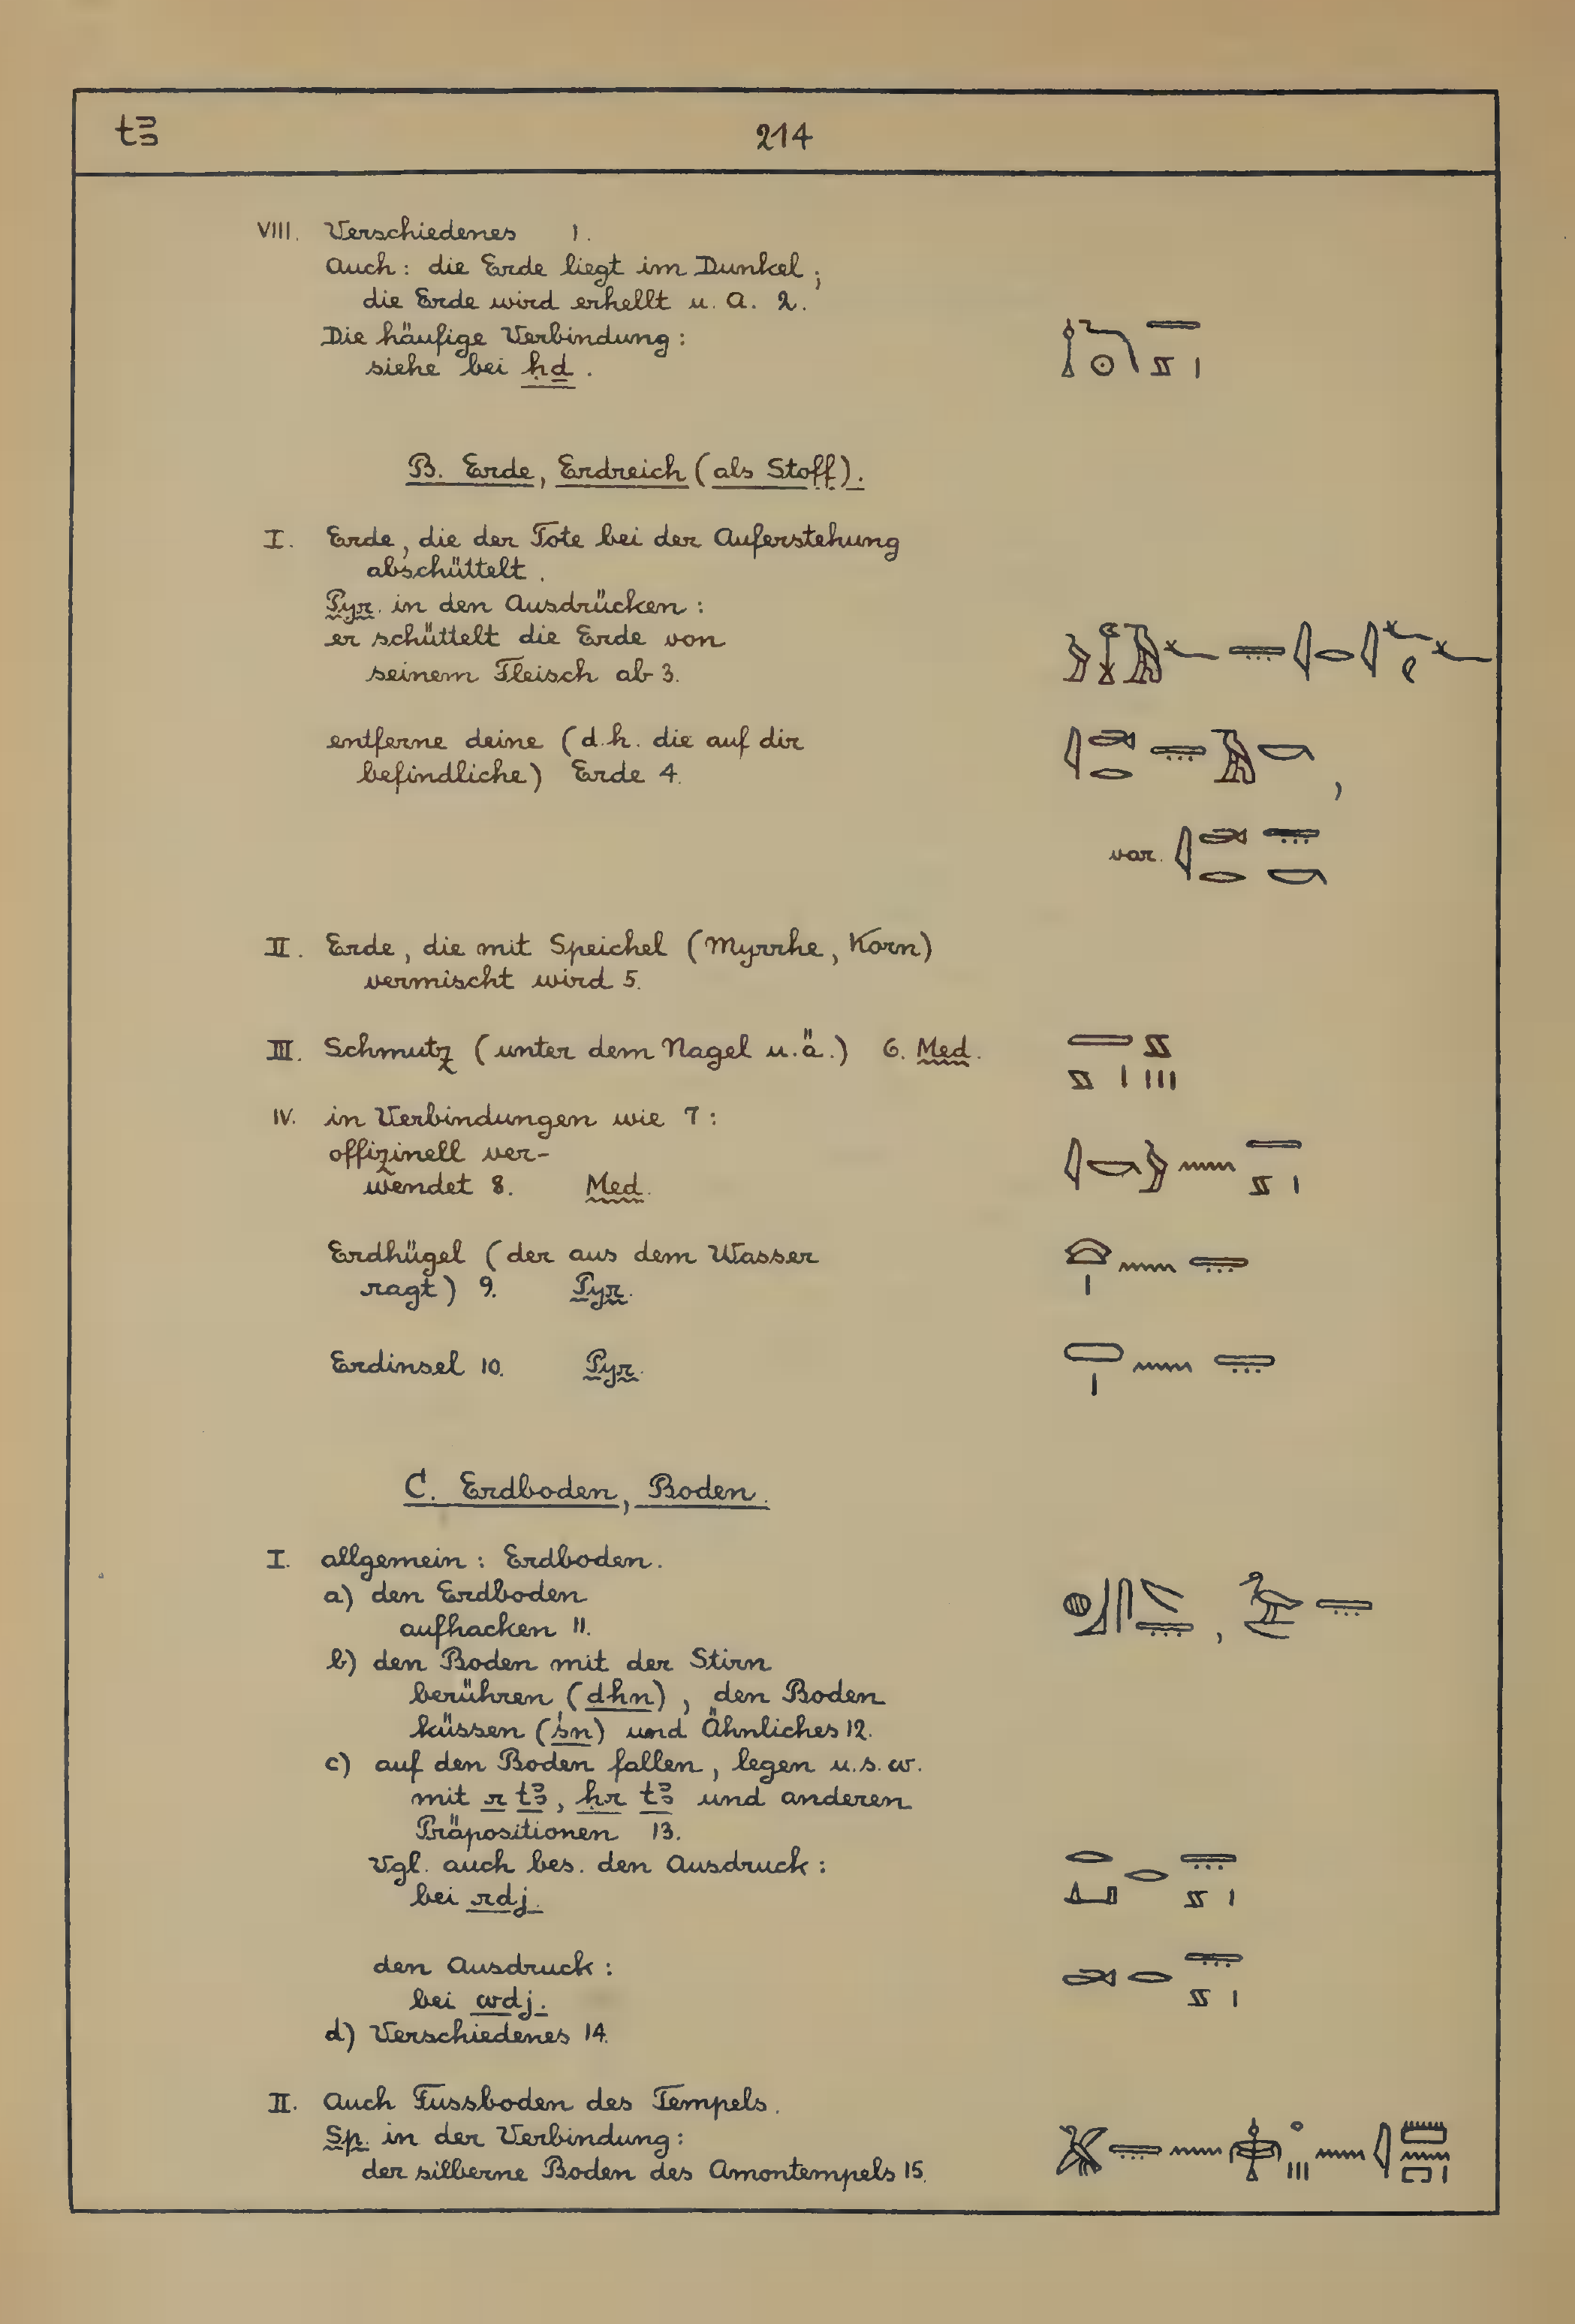 tꜣ 214
VIII. Verschiedenes 1.
Auch: die Erde liegt im Dunkel;
die Erde wird erhellt u. a. 2.
Die häufige Verbindung:
siehe bei ḥḏ.
B. Erde, Erdreich (als Stoff).
I. Erde, die der Tote bei der Auferstehung
abschüttelt.
Pyr. in den Ausdrücken:
er schüttelt die Erde von
seinem Fleisch ab 3.
entferne deine (d.h. die auf dir
befindliche) Erde 4.
,
var.
II. Erde, die mit Speichel (Myrrhe, Korn)
vermischt wird 5.
III. Schmutz (unter dem Nagel u.ä.) 6. Med.
IV. in Verbindungen wie 7:
offizinell ver-
wendet 8. Med.
Erdhügel (der aus dem Wasser
ragt) 9. Pyr.
Erdinsel 10. Pyr.
C. Erdboden, Boden.
I. allgemein: Erdboden.
a) den Erdboden
aufhacken 11.
b) den Boden mit der Stirn
berühren (dhn), den Boden
küssen (śn) und Ähnliches 12.
c) auf den Boden fallen, legen u.s.w.
mit r tꜣ, ḥr tꜣ und anderen
Präpositionen 13.
Vgl. auch bes. den Ausdruck:
bei rdj.
den Ausdruck:
bei wdj.
d) Verschiedenes 14.
II. Auch Fussboden des Tempels.
Sp. in der Verbindung:
der silberne Boden des Amontempels 15.